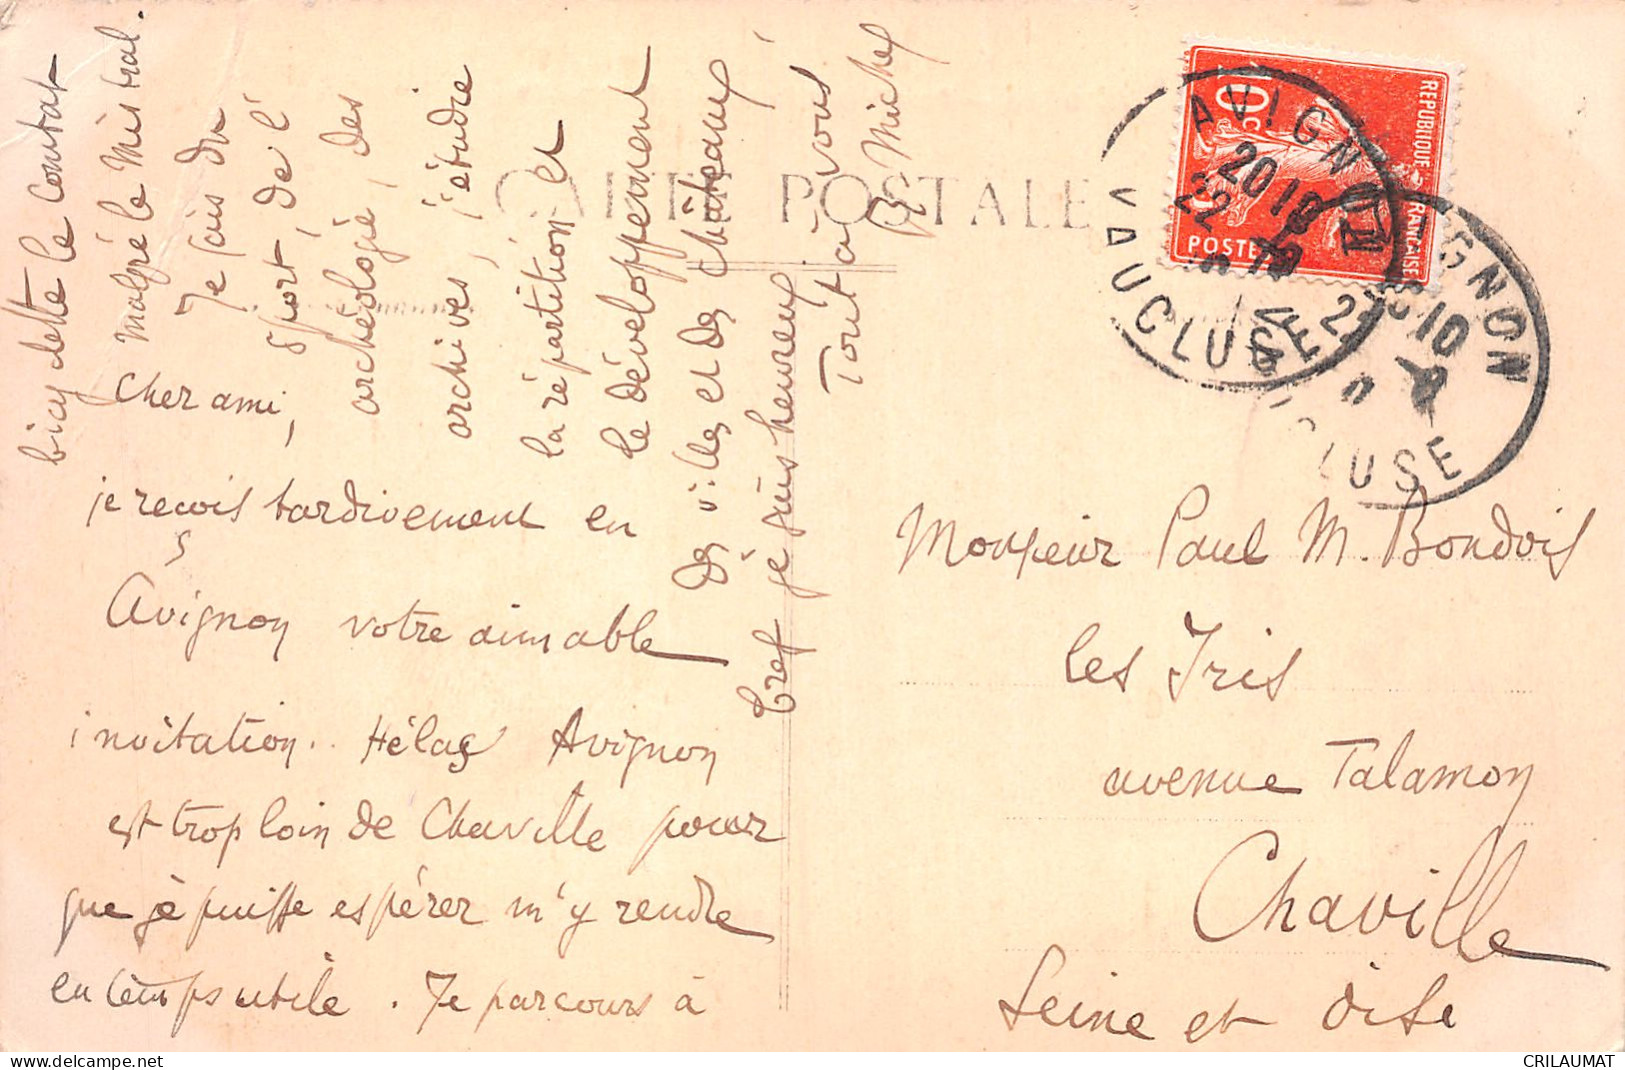 CARTE POSTALE
Cher ami,
je reçois tardivement en
Avignon votre aimable
invitation.. Hélas Avignon
est trop loin de Chaville pour
que je puisse espérer m'y rendre
en temps utile. Je parcours à
bicyclette le Comtat
malgré le Mistral.
Je fais du
sport, de l'
archéologie, des
archives, j'étudie
la répartition et
le développement
des villes et des châteaux
bref je suis heureux
Tout à vous
R Michel
Monsieur Paul M. Bondois
les Iris
avenue Talamon
Chaville
Seine et Oise
REPUBLIQUE FRANCAISE
10c
POSTES
AVIGNON
20 10
22
VAUCLUSE
AVIGNON
10
VAUCLUSE
CRILAUMAT